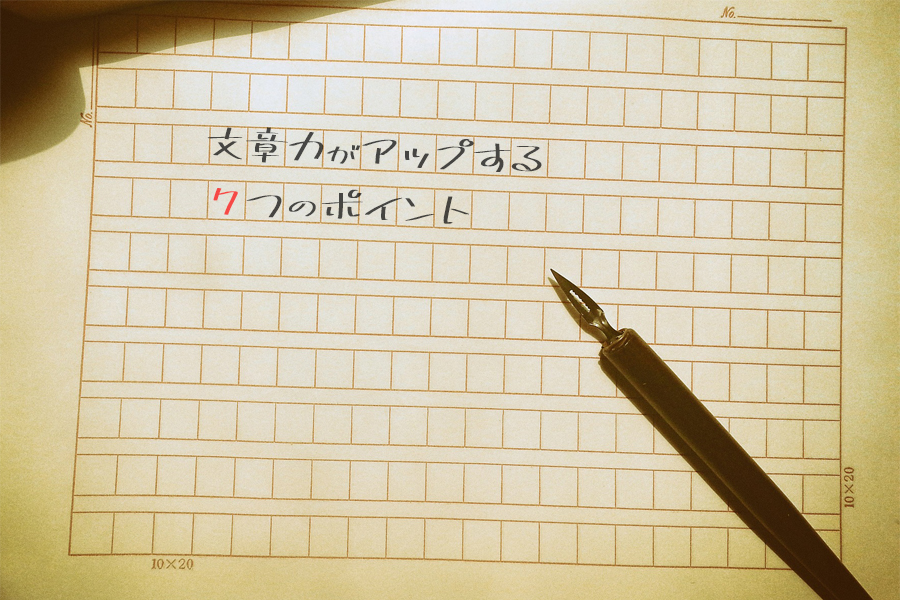 No.
No.
文章力がアップする
7つのポイント
10×20
10×20